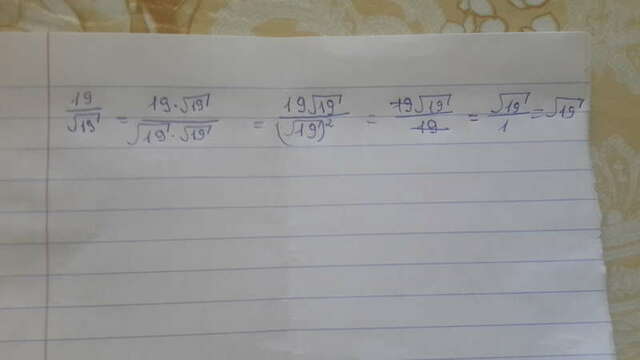 19/√19 = 19·√19/√19·√19 = 19√19/(√19)² = 19√19/19 = √19/1 = √19